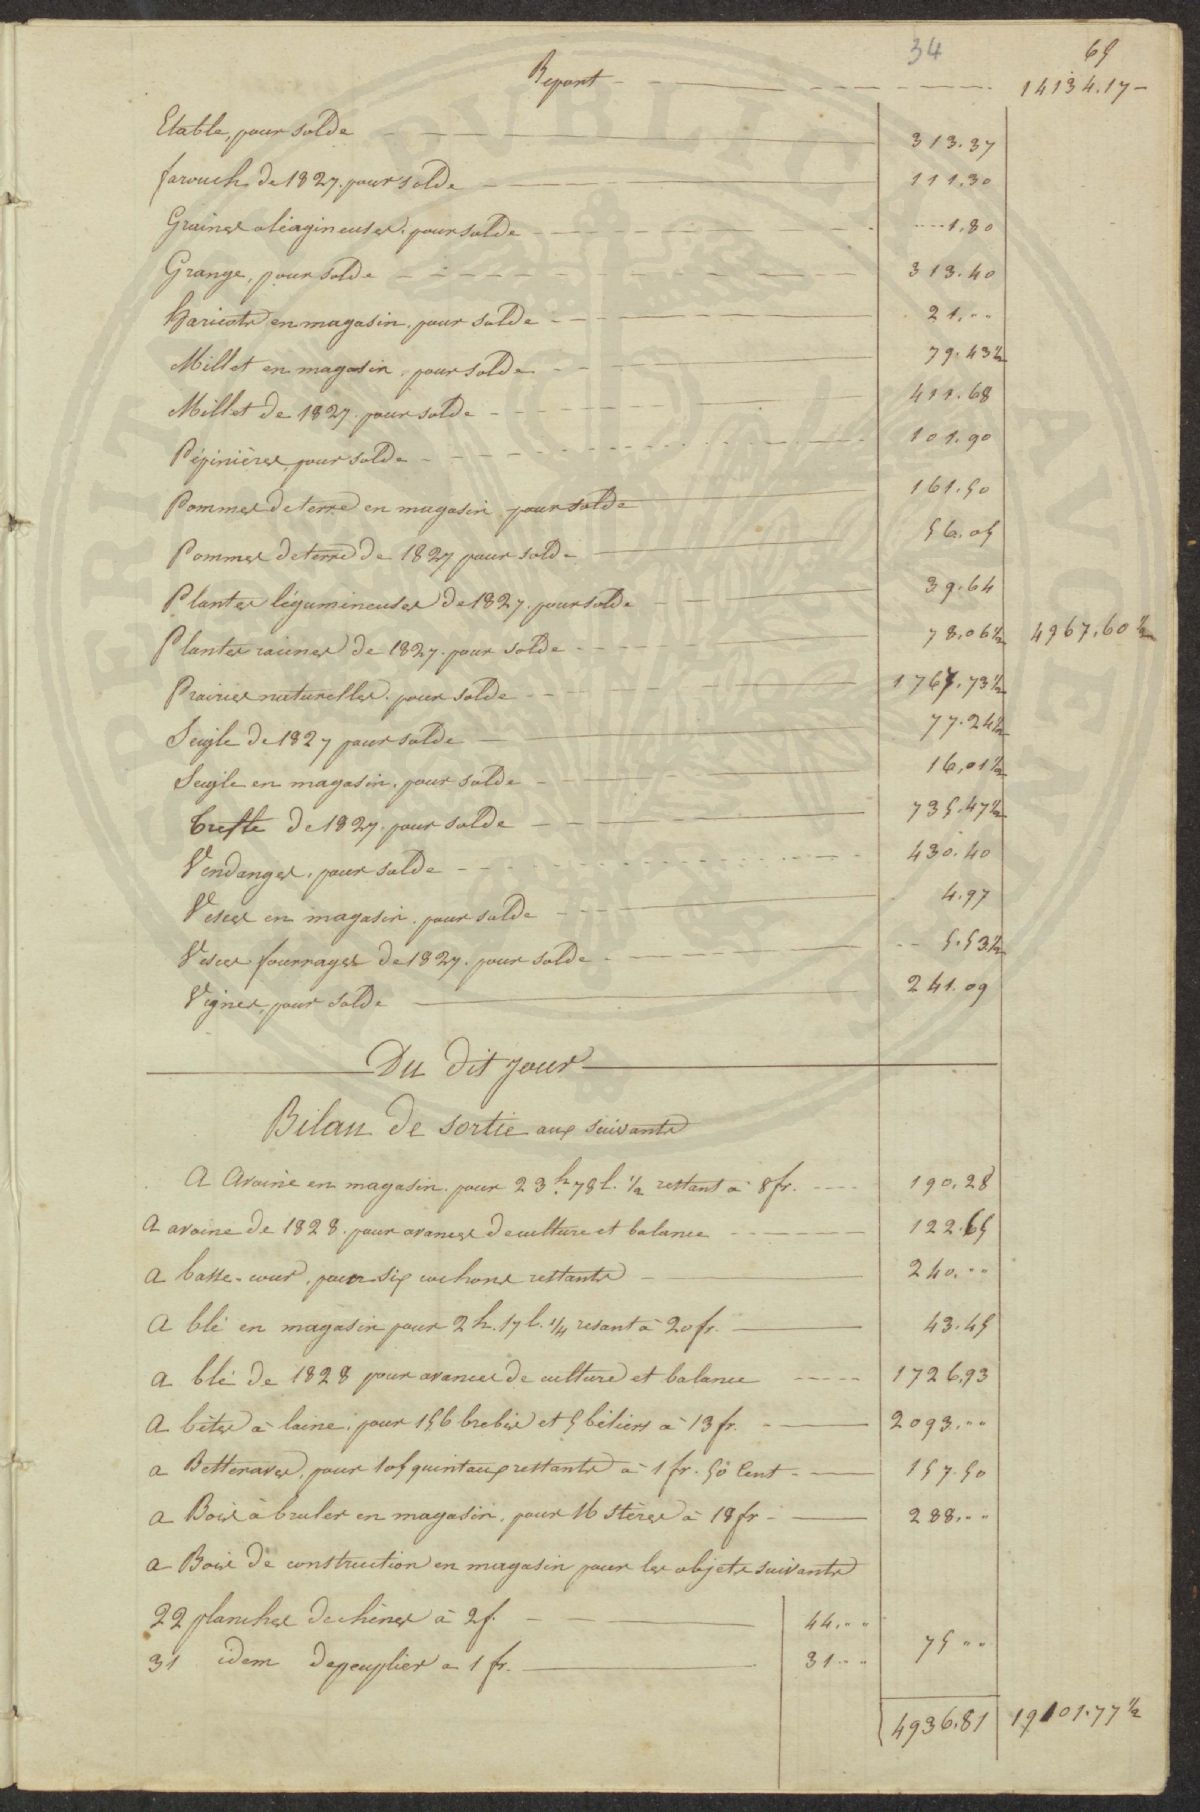 34 65
Report 14134.17
Etable, pour solde 313.37
farouch de 1827. pour solde 111.30
Graines oléagineuses, pour solde 1.80
Grange, pour solde 313.40
haricots en magasin, pour solde 21."
Millet en magasin, pour solde 79.43½
Millet de 1827. pour solde 411.68
Pépinières, pour solde 101.90
Pommes de terre en magasin pour solde 161.50
Pommes de terre de 1827 pour solde 56.05
Plantes légumineuses de 1827. pour solde 39.64
Plantes racines de 1827. pour solde 78.06½ 4967.60½
Prairies naturelles, pour solde 1765.73½
Seigle de 1827 pour solde 77.24½
Seigle en magasin, pour solde 16.01½
trefle de 1827, pour solde 735.47½
Vendanges, pour solde 430.40
Vesces en magasin, pour solde 4.97
Vesces fourrages de 1827. pour solde 5.53½
Vignes, pour solde 241.09
Du dit jour
Bilan de sortie aux suivants
A Avoine en magasin, pour 23h. 78l. ½ restant à 8fr. 190.28
A avoine de 1828. pour avances de culture et balance 122.65
A basse-cour, pour six cochons restants 240."
A blé en magasin pour 2h. 17l. ¼ resant à 20fr. 43.45
A blé de 1828 pour avances de culture et balance 1726.93
A bêtes à laine, pour 156 brebis et 5 béliers à 13fr. 2093."
a Betteraves, pour 105 quintaux restants à 1fr. 50 Cent 157.50
a Bois à bruler en magasin, pour 16 stères à 18fr 288."
a Bois de construction en magasin pour les objets suivants
22 planches de chênes à 2f. 44."
31 idem de peuplier a 1fr. 31." 75"
4936.81 19101.77½